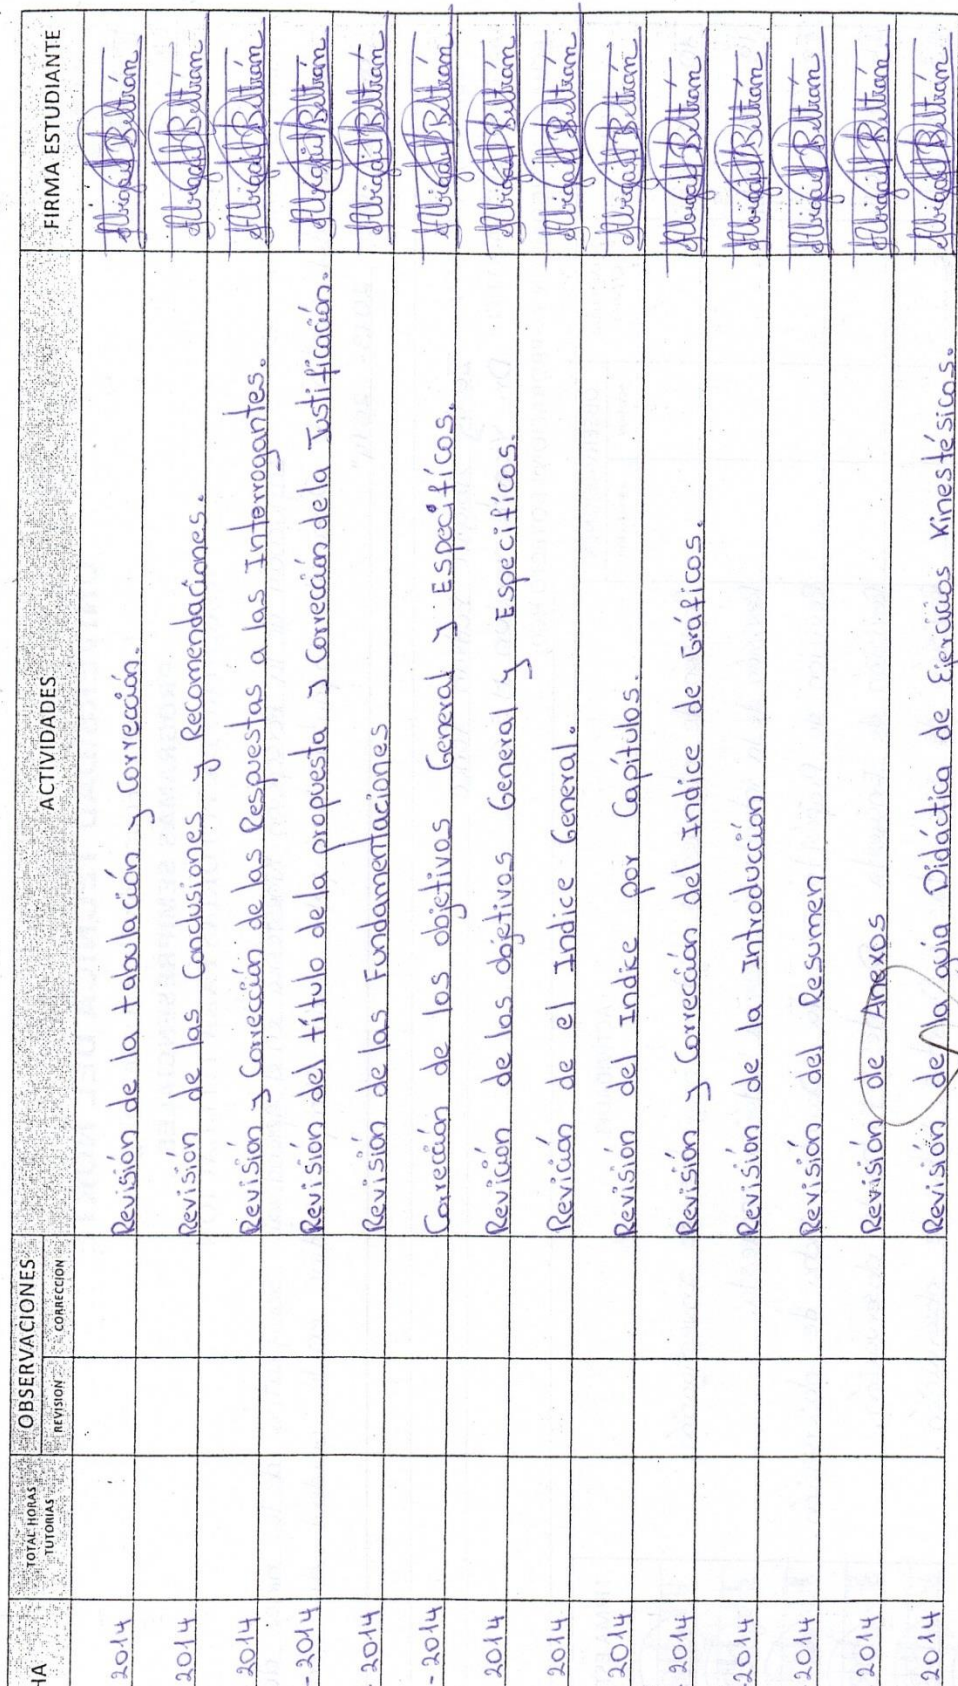 HA TOTAL HORAS TUTORIAS OBSERVACIONES REVISION CORRECCION ACTIVIDADES FIRMA ESTUDIANTE
2014 Revisión de la tabulación y Corrección. Abigail Beltrán
2014 Revisión de las Conclusiones y Recomendaciones. Abigail Beltrán
2014 Revisión y Corrección de las Respuestas a las Interrogantes. Abigail Beltrán
- 2014 Revisión del título de la propuesta y Corrección de la Justificación. Abigail Beltrán
- 2014 Revisión de las Fundamentaciones Abigail Beltrán
- 2014 Corrección de los objetivos General y Específicos. Abigail Beltrán
2014 Revición de los objetivos General y Específicos. Abigail Beltrán
2014 Revición de el Indice General. Abigail Beltrán
2014 Revisión del Indice por Capítulos. Abigail Beltrán
- 2014 Revisión y Corrección del Indice de Gráficos. Abigail Beltrán
- 2014 Revisión de la Introducción Abigail Beltrán
2014 Revisión del Resumen Abigail Beltrán
2014 Revisión de Anexos Abigail Beltrán
2014 Revisión de la guia Didáctica de Ejercicios Kinestésicos. Abigail Beltrán